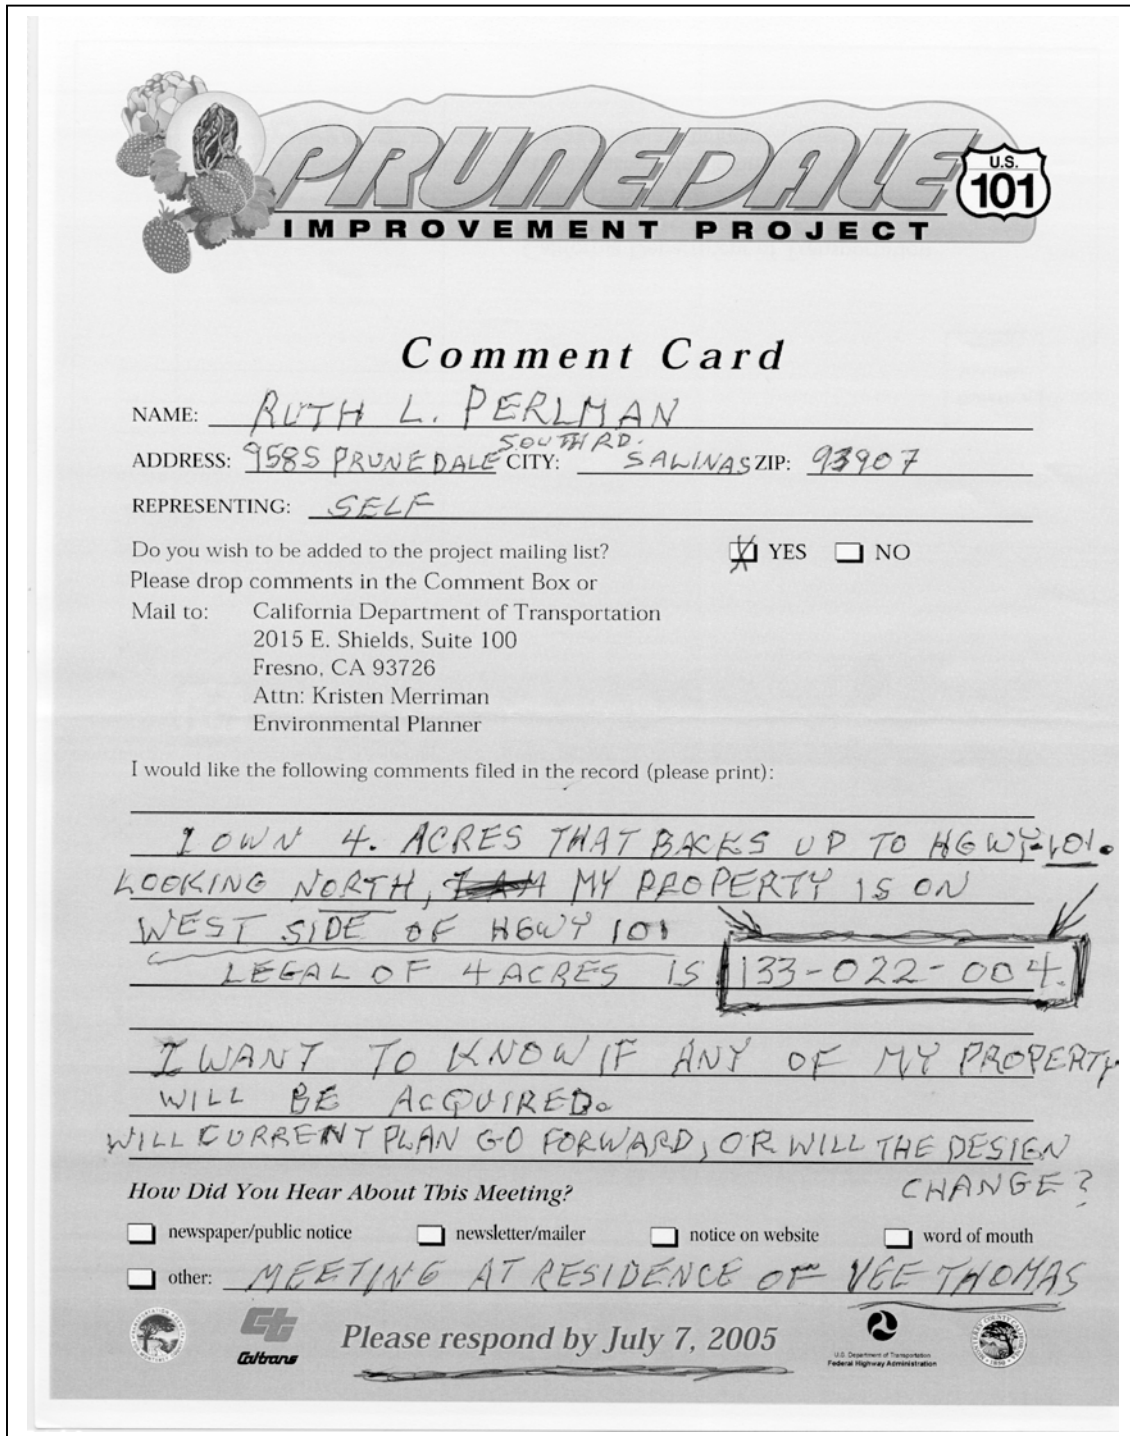 PRUNEDALE
U.S.
101
IMPROVEMENT PROJECT
Comment Card
NAME: RUTH L. PERLMAN
SOUTH RD.
ADDRESS: 9585 PRUNEDALE CITY: SALINAS ZIP: 93907
REPRESENTING: SELF
Do you wish to be added to the project mailing list? YES NO
Please drop comments in the Comment Box or
Mail to: California Department of Transportation
2015 E. Shields, Suite 100
Fresno, CA 93726
Attn: Kristen Merriman
Environmental Planner
I would like the following comments filed in the record (please print):
I OWN 4. ACRES THAT BACKS UP TO HGWY-101.
LOOKING NORTH, I AM MY PROPERTY IS ON
WEST SIDE OF HGWY 101
LEGAL OF 4 ACRES IS 133-022-004.
I WANT TO KNOW IF ANY OF MY PROPERTY
WILL BE ACQUIRED.
WILL CURRENT PLAN GO FORWARD, OR WILL THE DESIGN
CHANGE?
How Did You Hear About This Meeting?
newspaper/public notice newsletter/mailer notice on website word of mouth
other: MEETING AT RESIDENCE OF VEE THOMAS
Ct
Caltrans
Please respond by July 7, 2005
U.S. Department of Transportation
Federal Highway Administration